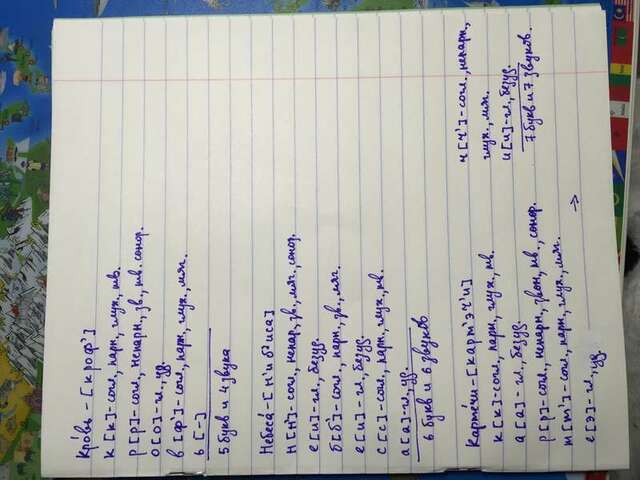 Кро́вь – [кроф']
к [к]-согл., парн., глух., тв.
р [р]-согл., непарн., зв., тв. сонор.
о [о]-гл., уд.
в [ф']-согл., парн., глух., мяг.
ь [-]
5 букв и 4 звука
Небеса́ – [н'иб'иса]
н [н']-согл., непар., зв., мяг., сонор.
е [и]-гл., безуд.
б [б']-согл., парн., зв., мяг.
е [и]-гл., безуд.
с [с]-согл., парн., глух., тв.
а [а]-гл., уд.
6 букв и 6 звуков
Карте́чи – [карт'эч'и]
к [к]-согл., парн., глух., тв.
а [а]-гл., безуд.
р [р]-согл., непарн., звон., тв., сонор.
т [т']-согл., парн., глух., мяг.
е [э]-гл., уд.
→
ч [ч']-согл., непарн.,
глух., мяг.
и [и]-гл., безуд.
7 букв и 7 звуков.